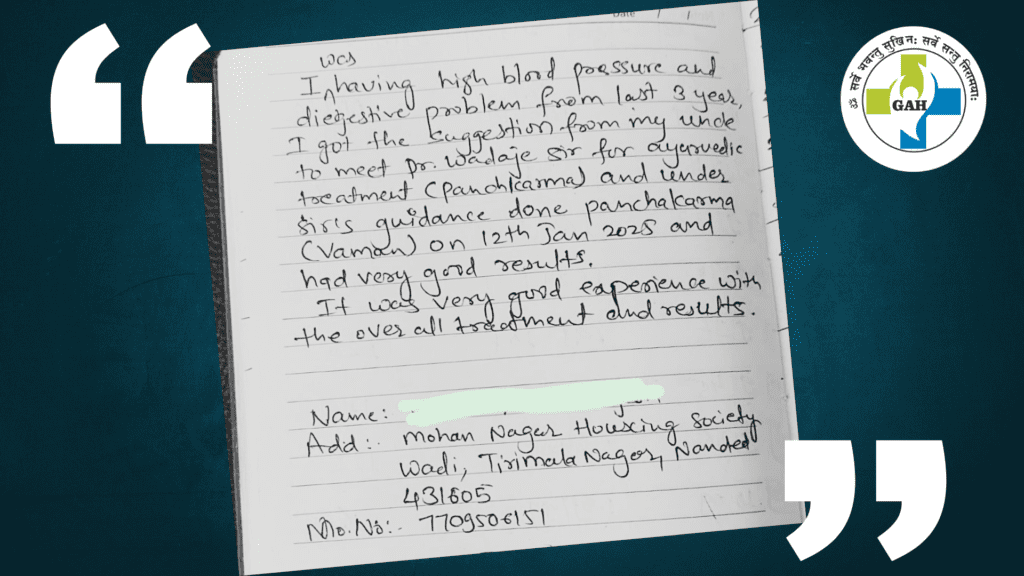 Date / /
ॐ सर्वे भवन्तु सुखिनः सर्वे सन्तु निरामयाः
GAH
was
I having high blood pressure and
diedjestive problem from last 3 year,
I got the suggestion from my uncle
to meet Dr. Wadaje sir for ayurvedic
treatment (panchkarma) and under
sir's guidance done panchakarma
(Vaman) on 12th Jan 2025 and
had very good results.
It was very good experience with
the over all treatment and results.
Name:
Add:- Mohan Nagar Housing Society
Wadi, Tirimala Nagar, Nanded
431605
Mo.No:- 7709506151